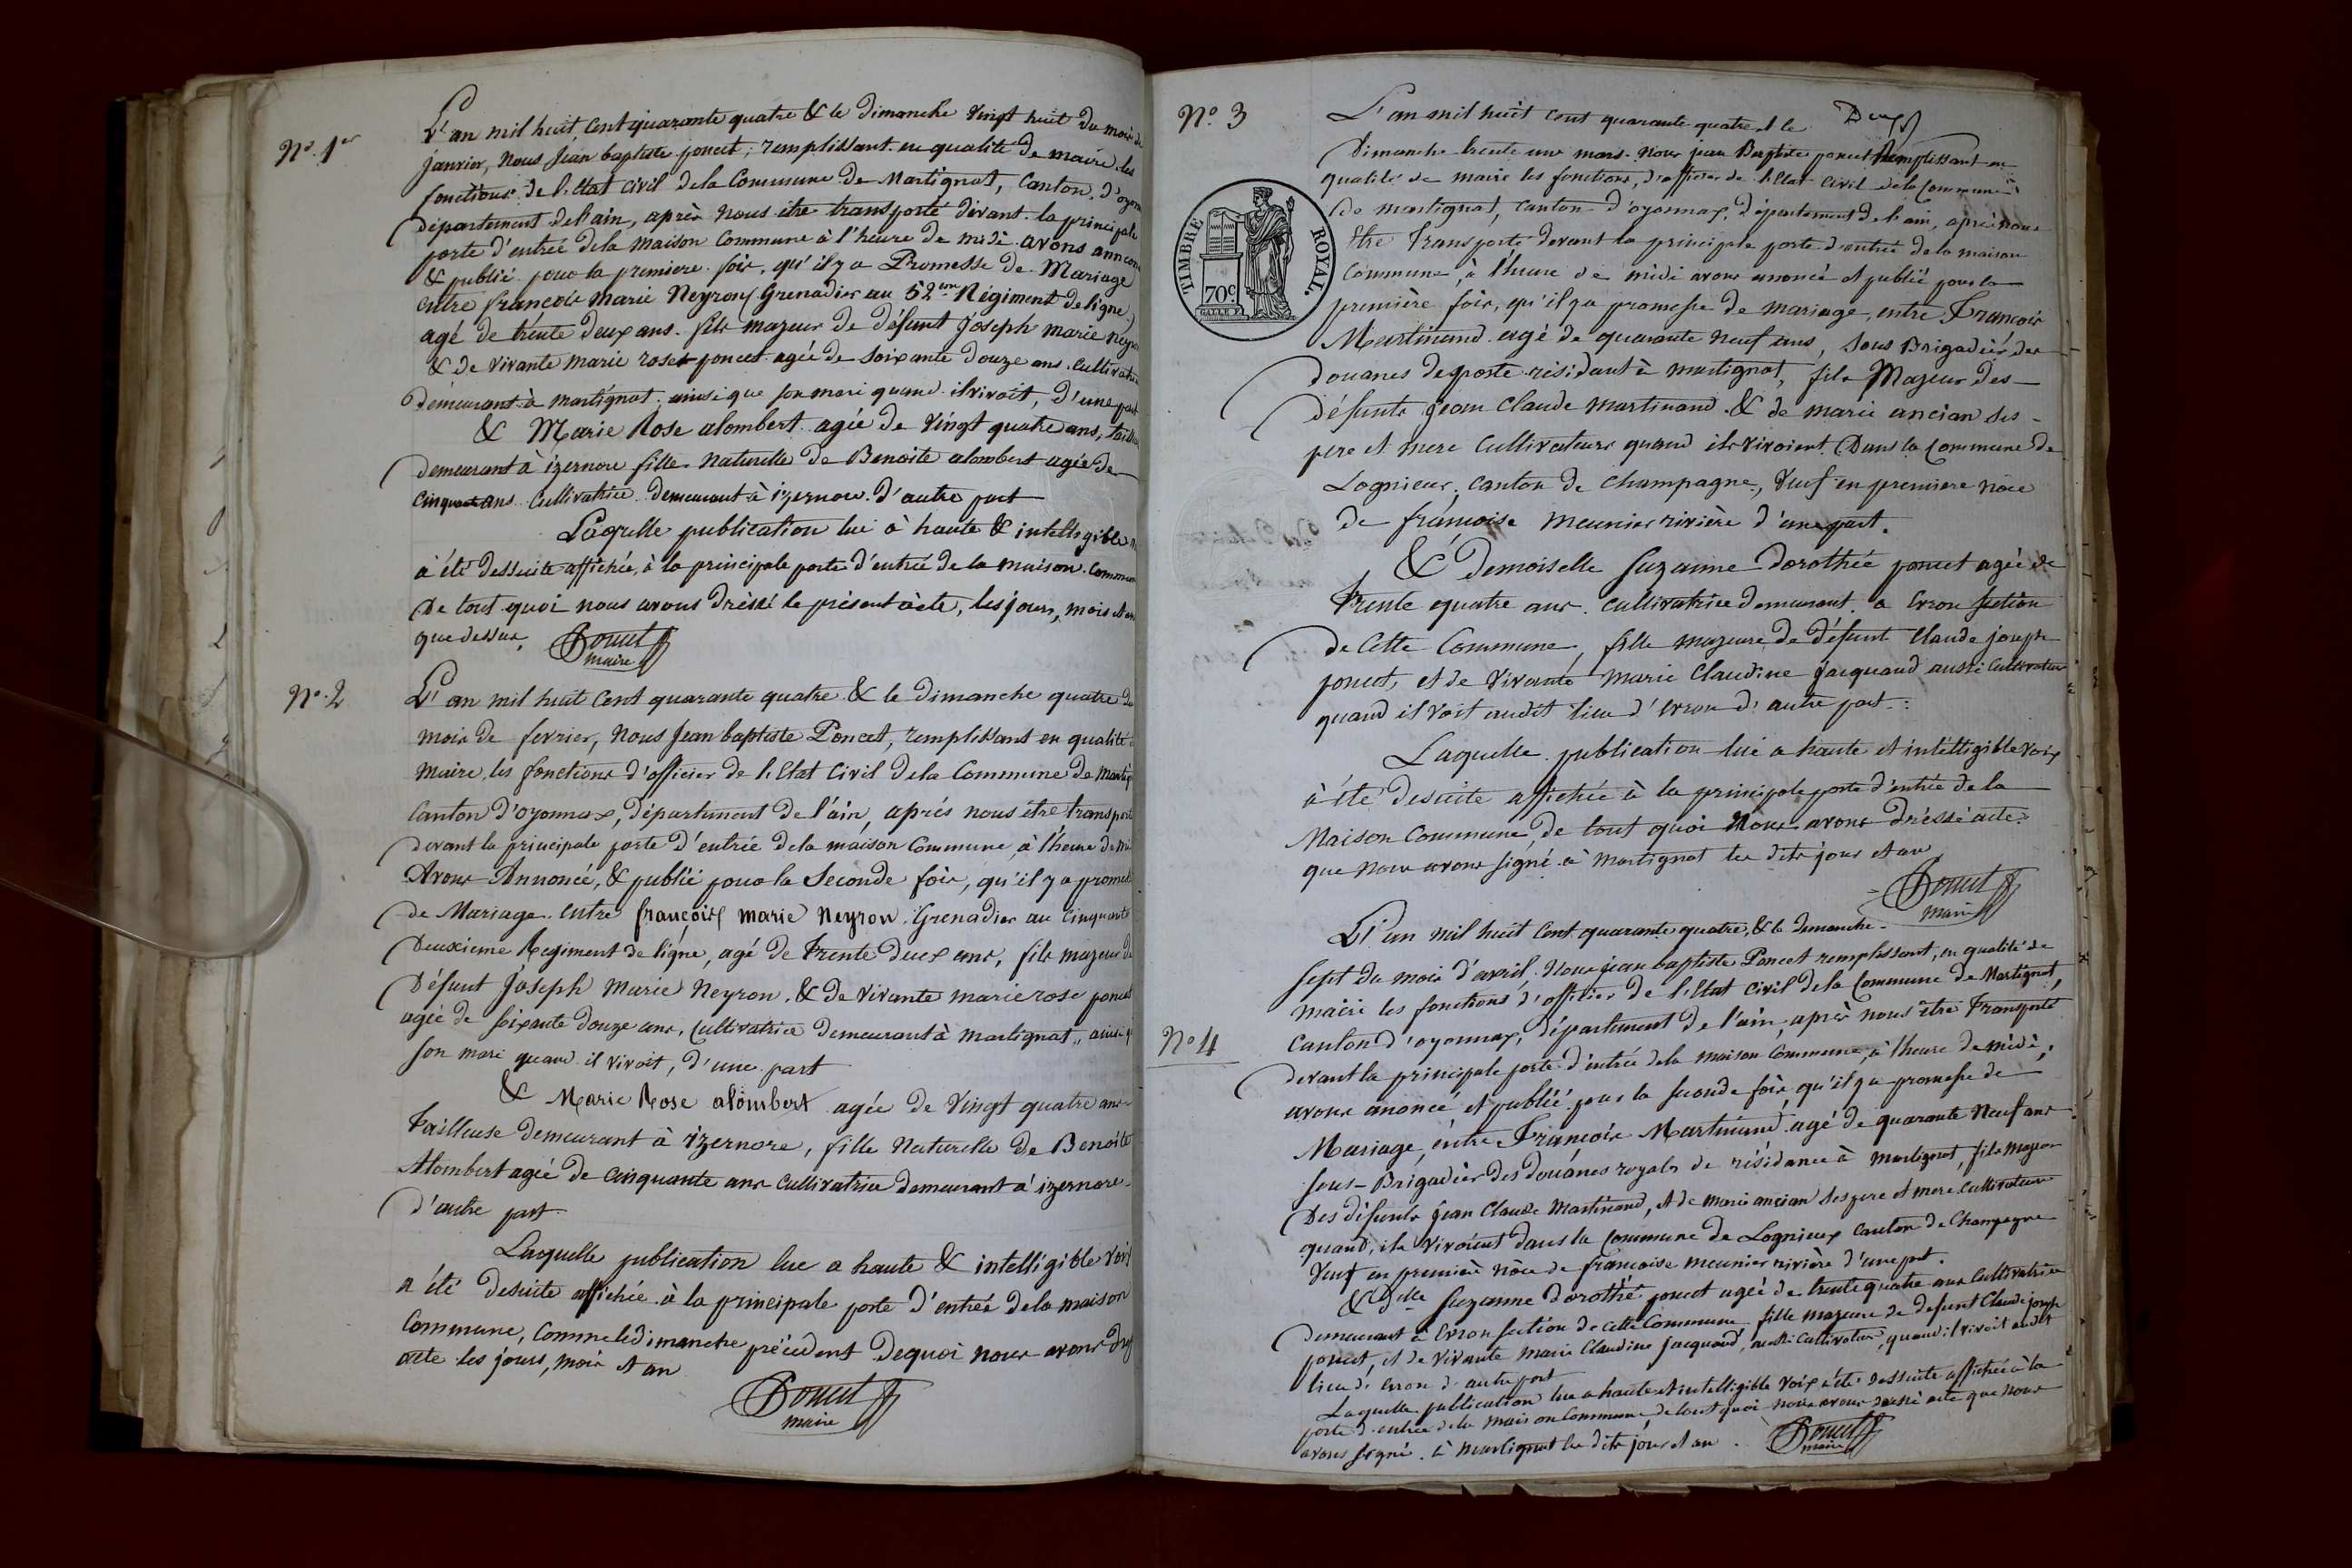 No. 1er
L'an mil huit Cent quarante quatre & le dimanche vingt huit du mois de
janvier, nous Jean baptiste poncet, remplissant en qualité de maire les
fonctions de l'Etat civil dela Commune de Martignat, Canton d'oyon
Département del'ain, après nous être transporté devant la principale
porte d'entrée dela maison Commune à l'heure de midi avons annon
& publié pour la premiere fois, qu'il y a Promesse de Mariage
entre françois marie Neyron Grenadier au 52em Régiment de ligne
agé de trente deux ans fils majeur de défunt Joseph marie neyr
& de vivante marie rose poncet agée de soixante douze ans, cultivatri
demeurant à martignat, ainsi que son mari quand il vivoit, d'une part
& Marie Rose alombert agée de vingt quatre ans, taill
demeurant à izernore fille naturelle de Benoite alombert agée de
cinquante ans cultivatrice demeurant à izernore d'autre part
Laquelle publication lue à haute & intelligible
à été dessuite affichée, à la principale porte d'entrée de la maison Commun
De tout quoi nous avons dressé le présent acte, les jours, mois et an
que dessus, Poncet
maire
No. 2
L'an mil huit Cent quarante quatre & le dimanche quatre du
mois de fevrier, nous Jean baptiste Poncet, remplissant en qualité
Maire les fonctions d'officier de l'Etat Civil dela Commune de Martig
Canton d'oyonnax, département de l'ain, après nous être transport
devant la principale porte d'entrée dela maison Commune, à l'heure de mi
Avons Annoncé, & publié pour la Seconde fois, qu'il y a prome
de Mariage entre françois marie Neyron Grenadier au Cinquante
Deuxieme Regiment de ligne, agé de trente deux ans, fils majeur de
défunt Joseph Marie Neyron, & de vivante marie rose poncet
agée de soixante douze ans, Cultivatrice demeurant à Martignat, ainsi q
son mari quand il vivoit, d'une part
& Marie Rose alombert agée de vingt quatre ans
tailleuse demeurant à izernore, fille Naturelle de Benoite
Alombert agée de Cinquante ans Cultivatrice demeurant à izernore
d'autre part
Laquelle publication lue a haute & intelligible voix
a été desuite affichée à la principale porte d'entrée dela maison
Commune, Comme le dimanche précédent De quoi nous avons
acte les jours, mois et an
Poncet
maire
Deux
No. 3
TIMBRE ROYAL.
70c.
L'an mil huit cent quarante quatre et le
Dimanche trente un mars nous jean Baptiste poncet Remplissant en
qualité de maire les fonctions, d'officier de l'Etat Civil dela Commune
de martignat, canton d'oyonnax, département de l'ain, après nous
être transporté devant la principale porte d'entrée de la maison
Commune, à l'heure de midi avons anoncé et publié pour la
première fois, qu'il y a promesse de mariage, entre François
Martinand agé de quarante neuf ans, Sous Brigadier des
douanes de poste résidant à martignat, fils Majeur des
défunts Jean Claude martinand & de marie ancian ses
pere et mere cultivateurs quand ils vivoient Dans la Commune de
Lognieux, canton de Champagne, Veuf en premiere noce
de françoise meunier rivière d'une part.
& Demoiselle Suzanne dorothée poncet agée de
Trente quatre ans cultivatrice demeurant a Evron Section
de Cette Commune, fille majeure de défunt Claude joseph
poncet, et de vivante marie Claudine jacquand aussi Cultivateur
quand il voit audit lieu d'evron d'autre part.
Laquelle publication lue a haute et intelligible voix
à été desuite affichée à la principale porte d'entrée de la
Maison Commune, de tout quoi nous avons dressé acte
que nous avons signé à Martignat les dits jour et an
Poncet
maire
No 4
L'an mil huit Cent quarante quatre, & le dimanche
Sept du mois d'avril, nous jean baptiste Poncet remplissant, en qualité de
maire les fonctions d'officier de l'Etat Civil dela Commune de Martignat,
Canton d'oyonnax, département de l'ain, après nous être transporté
devant la principale porte d'entrée dela maison Commune, à l'heure de midi,
avons anoncé et publié pour la seconde fois, qu'il y a promesse de
Mariage, entre François Martinand agé de quarante Neuf ans
sous-Brigadier des douanes royales de résidance à Martignat, fils majeur
Des défunts Jean Claude Martinand, et de marie ancian ses pere et mere cultivateurs
quand, ils vivoient dans la Commune de Lognieux Canton de Champagne
Veuf en première nôce de françoise meunier rivière d'une part.
& Delle Suzanne dorothé poncet agée de trente quatre ans cultivatrice
demeurant à Evron section de cette Commune, fille majeure de defunt Claude joseph
poncet, et de vivante marie Claudine jacquand, aussi cultivateur, quand il vivoit audit
lieu d'evron d'autre part
Laquelle publication lue a haute et intelligible voix a été dessuite affichée à la
porte d'entrée dela maison Commune, de tout quoi nous avons dressé acte que nous
avons signé. à Martignat les dits jour et an. Poncet
maire